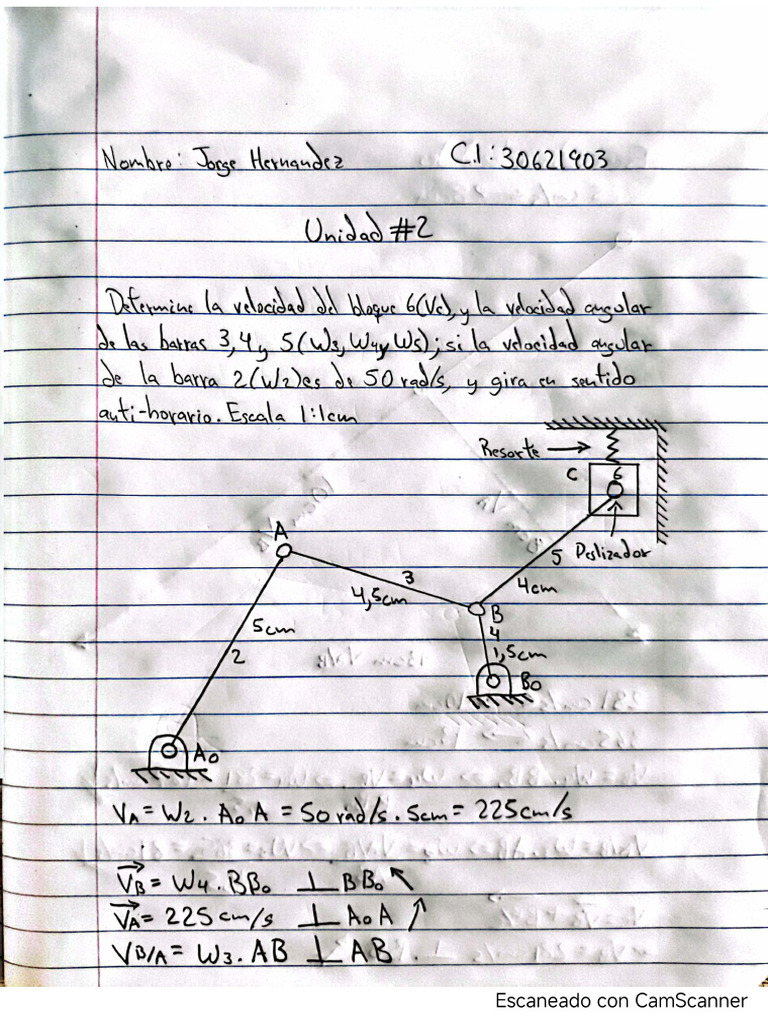 Nombre: Jorge Hernandez C.I: 30621903
Unidad #2
Determine la velocidad del bloque 6(Vc), y la velocidad angular
de las barras 3, 4 y 5 (W3, W4 y W5); si la velocidad angular
de la barra 2(W2) es de 50 rad/s, y gira en sentido
anti-horario. Escala 1:1cm
Resorte →
C 6
A
5 Deslizador
3
4cm
4,5cm
B
5cm
4
2
1,5cm
Bo
Ao
VA = W2 . Ao A = 50 rad/s . 5cm = 225cm/s
VB = W4 . BBo ⊥ BBo ↖
VA = 225 cm/s ⊥ AoA ↗
VB/A = W3 . AB ⊥ AB
Escaneado con CamScanner